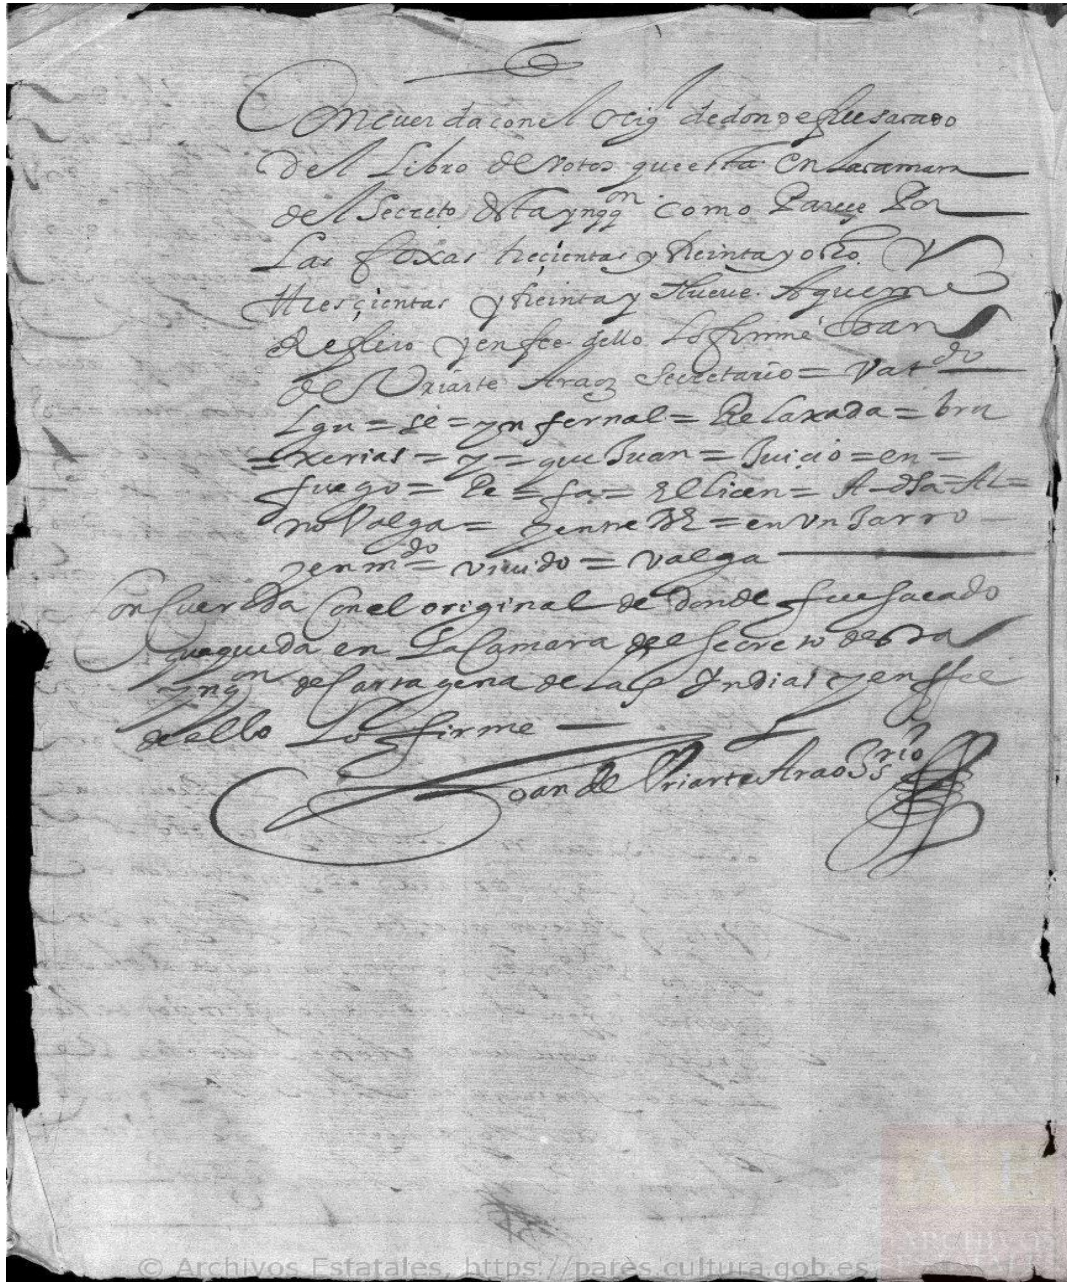 Concuerda con el orig¹ de donde fue sacado
del Libro de Votos que esta en la camara
del Secreto desta ynqqon como Parece Por
Las foxas treçientas y treinta y ocho y
tresçientas y treinta y Nueve. A que me
Refiero y en fee dello Lo firme Joan
de Uriarte Araoz Secretario = Vatdo
Lgu = se = ynfernal = Relaxada = bru
= xerias = y = que Juan = Juicio = en =
fuego = Re = fa = El licen = A = dsa = Al =
no Valga = y entre Rs = en un Jarro —
y enmdo = viuido = valga
Concuerda Con el original de donde fue sacado
que queda en La Camara del Secreto desta
ynqon de Cartagena de Las Yndias y en ffee
de ello Lo firme —
Joan de Uriarte Araoz srio
© Archivos Estatales, https://pares.cultura.gob.es